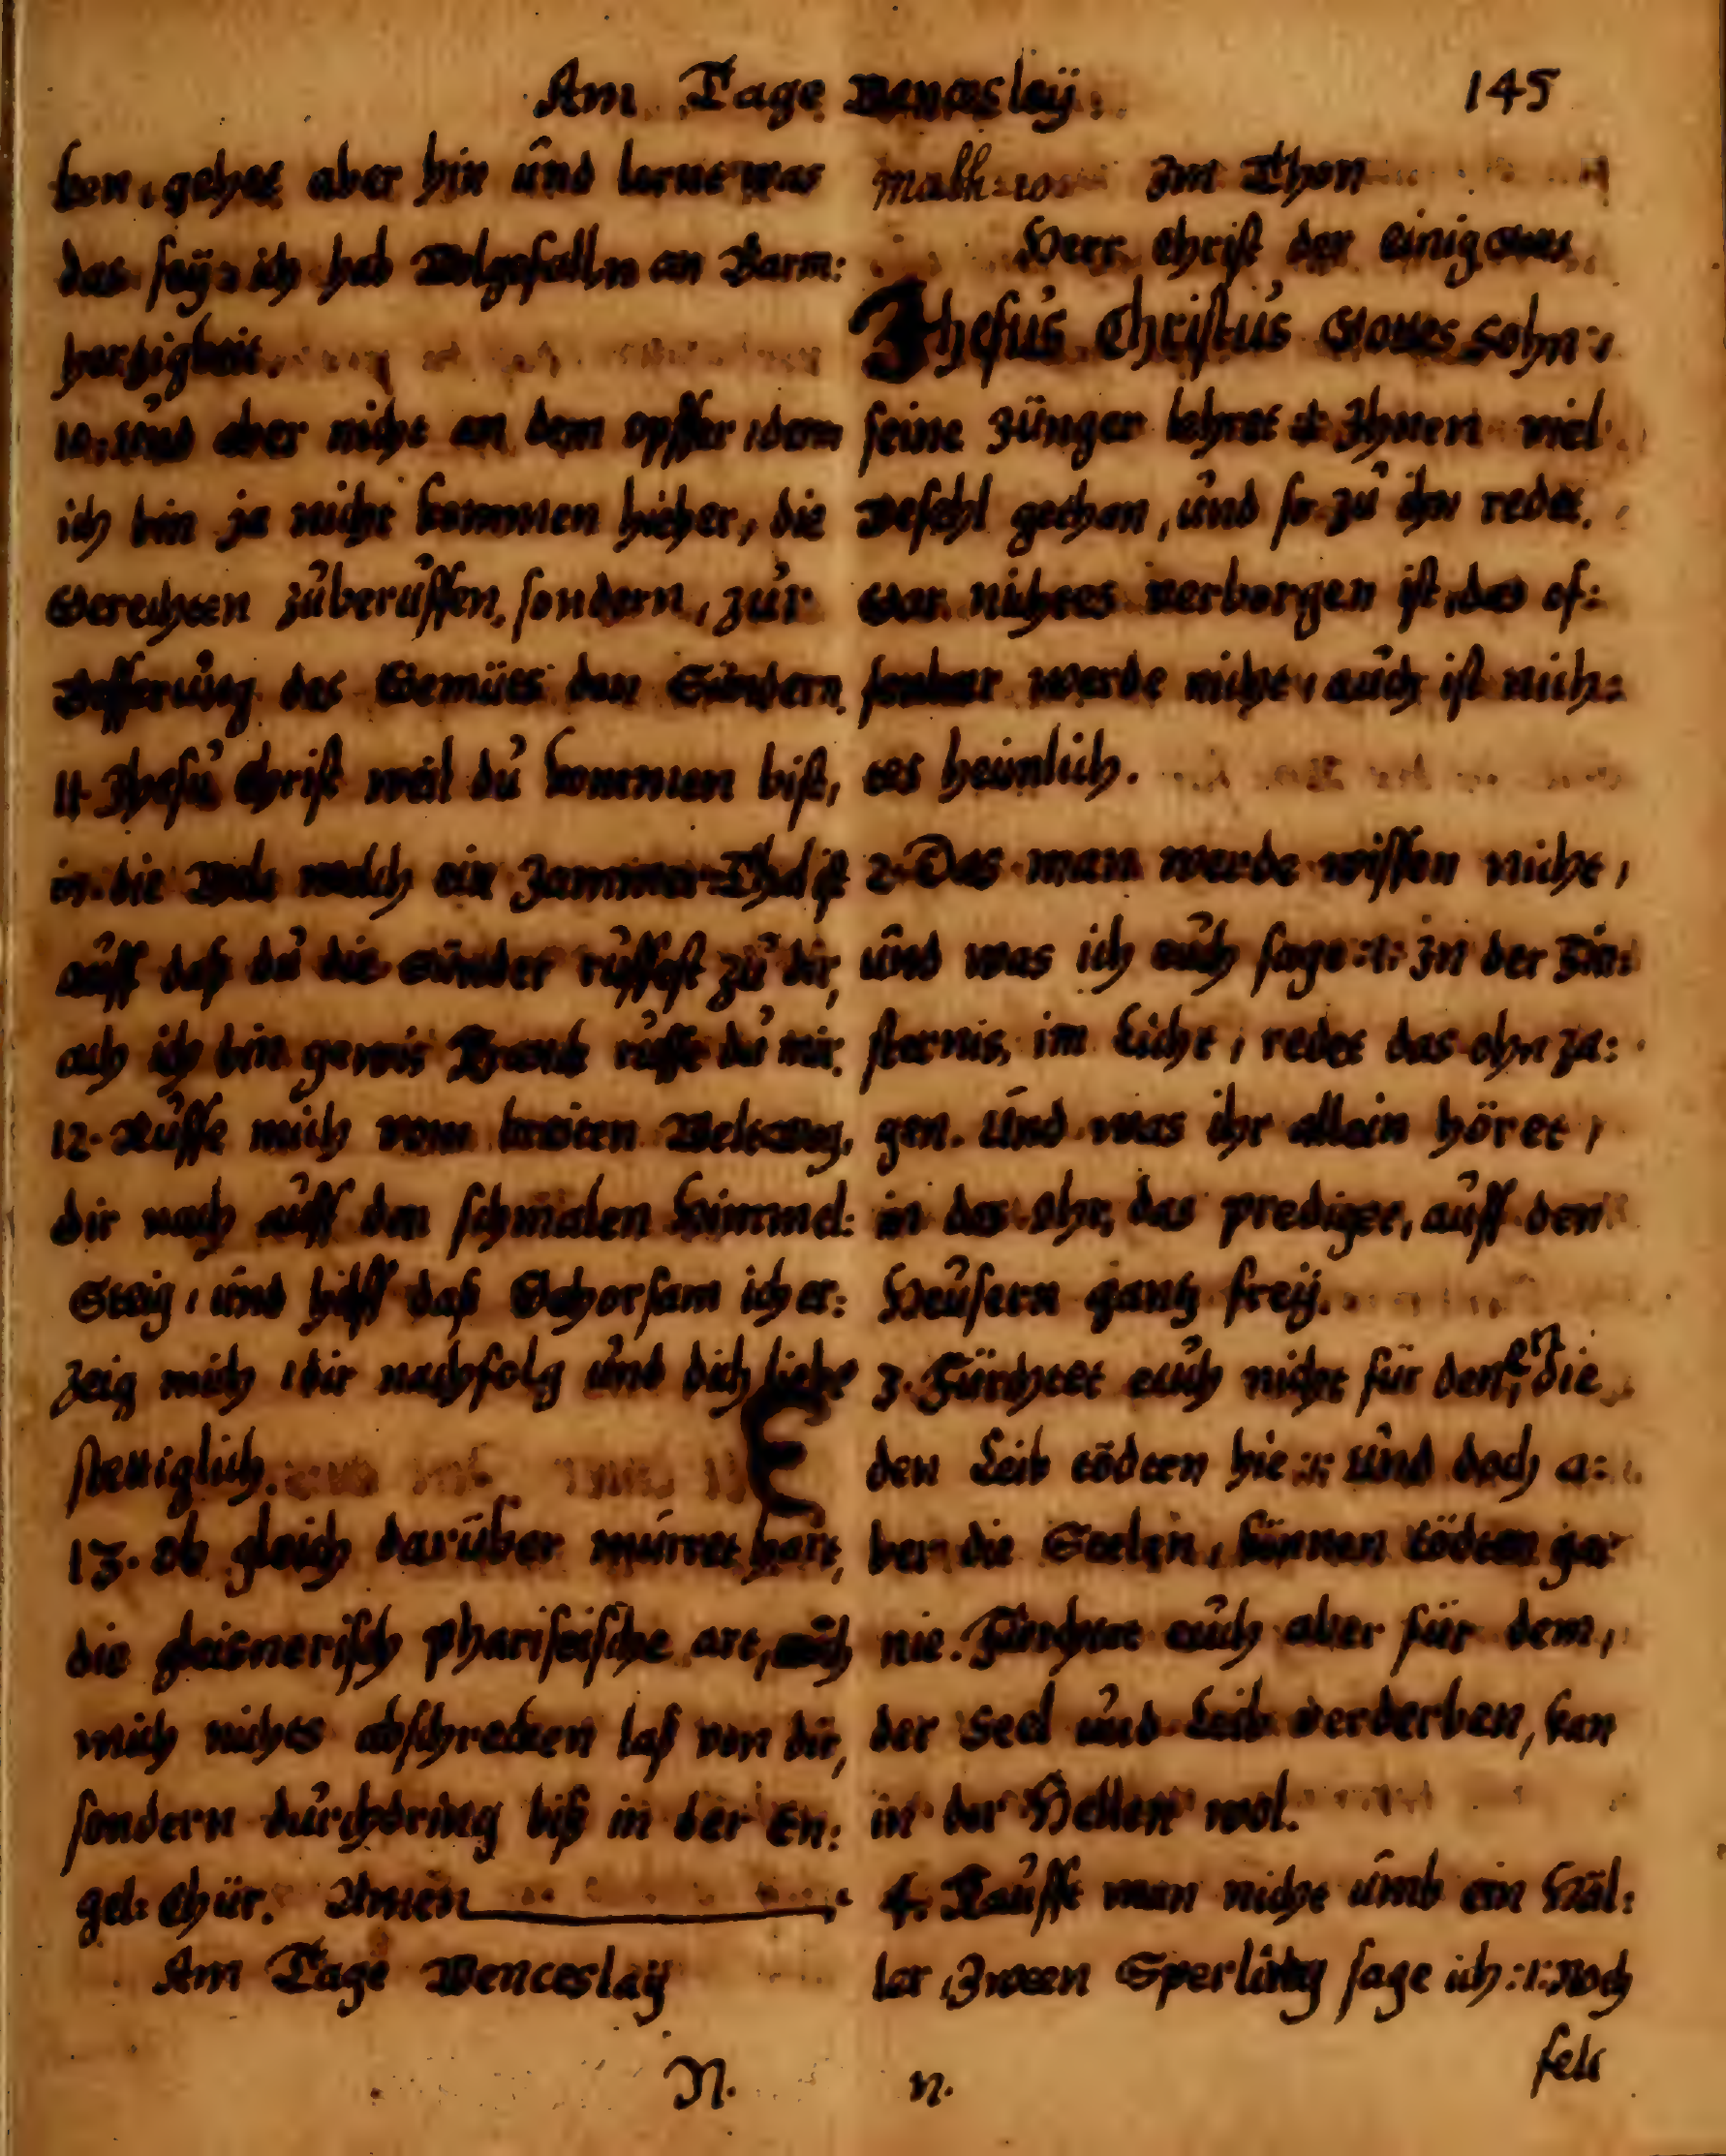 Am Tage Wenceslaÿ. 145
ken, gehet aber hin und lerne was
das seÿ, ich hab Wolgefalln an Barm:
hertzigkeit.
10. Und aber nicht an dem opffer, denn
ich bin ja nicht kommen hieher, die
Gerechten zuberuffen, sondern, zur
Besserung des Gemüts den Sündern.
11. Jhesu Christ weil du kommen bist,
in die Welt welch ein Jammer-Thal ist
auff daß du die Sünder ruffest zu dir,
ach ich bin gewis Kranck ruffe du mir.
12. Ruffe mich vom breiten Weltweg,
dir nach auff den schmalen Himmel:
Steig, und hilff daß Gehorsam ich er:
zeig mich, dir nachfolg und dich liebe
stetiglich.
13. Ob gleich darüber murret hart,
die gleisnerisch phariseische art, auch
mich nichts abschrecken laß von dir,
sondern durchdring biß in der En:
gel: Chür. Amen
Am Tage Wenceslaÿ
N.
Math: 10 Im Thon
Herr Christ der einig Gottes
Jhesus Christus Gottes Sohn:,
seine Jünger lehret :|: Ihnen viel
Befehl gethan, und so zu ihn redet.
Gar nichtes verborgen ist, das of:
fenbar werde nicht, auch ist nich:
tes heimlich.
2. Das man werde wissen nicht,
und was ich euch sage :|: In der Fin:
sternis, im Licht, redet das ohn za:
gen. Und was ihr allein höret,
in das ohr, das prediget, auff den
Heusern gantz freÿ.
3. Fürchtet euch nicht für denen, die
den Leib tödten hie :|: und doch a:
ber die Seelen, können tödten gar
nie. Fürchtet euch aber für dem,
der Seel und Leib verderben, kan
in der Hellen wol.
4. Kaufft man nicht umb ein Häl:
ler, Zween Sperling sage ich :|: Noch
n. felt